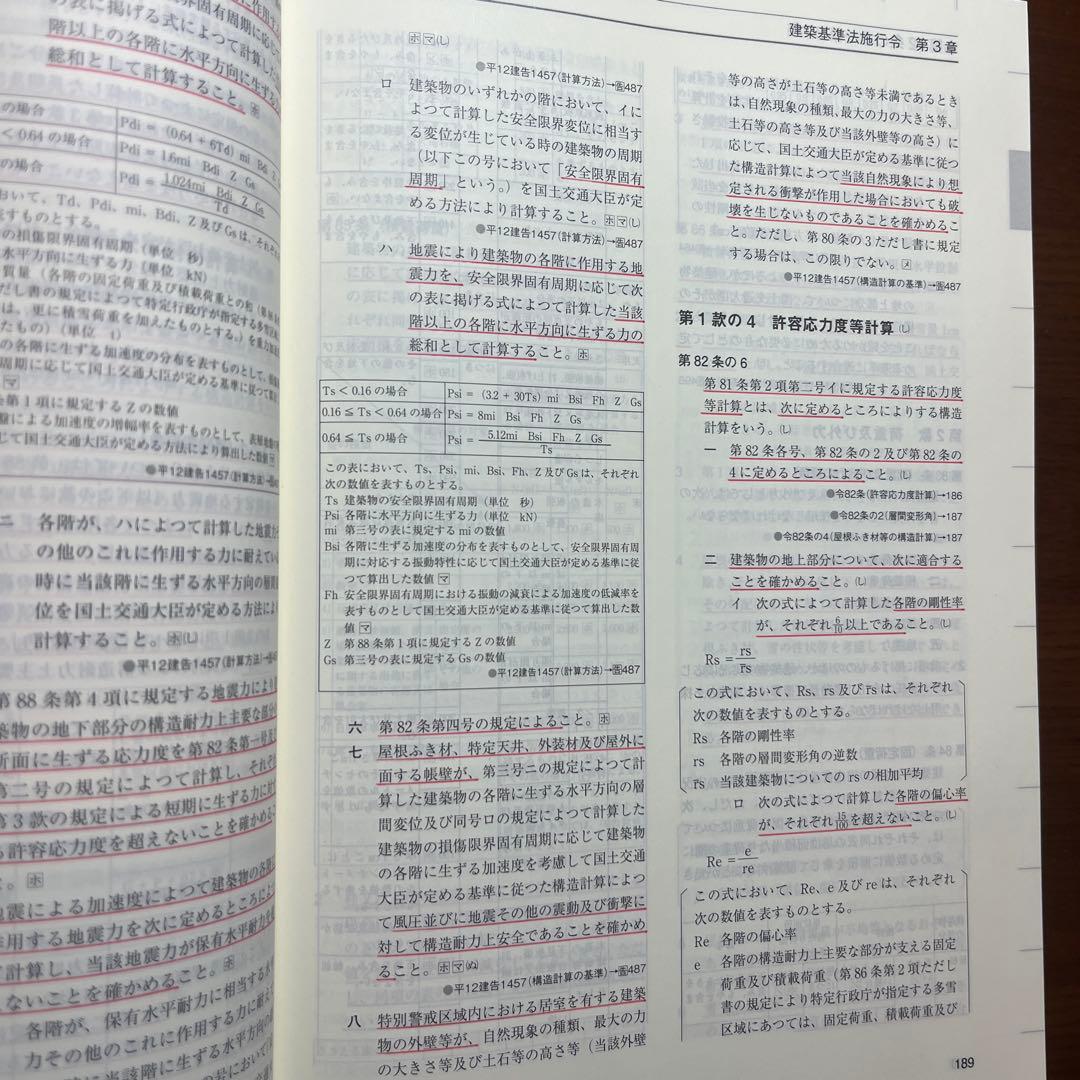 階以上の各階に水平方向に生ずる
総和として計算すること。ホ
の場合
Pdi = (0.64 + 6Td) mi Bd
< 0.64 の場合
Pdi = 1.6mi Bdi Z Gs
の場合
Pdi = 1.024mi Bdi Z Gs / Td
おいて、Td、Pdi、mi、Bdi、Z 及び Gs は、それぞ
すものとする。
の損傷限界固有周期（単位 秒）
水平方向に生ずる力（単位 kN）
質量（各階の固定荷重及び積載荷重との和
だし書の規定によつて特定行政庁が指定する多雪
は、更に積雪荷重を加えたものとする。）を重力加
たもの）（単位 t）
の各階に生ずる加速度の分布を表すものとして、
周期に応じて国土交通大臣が定める基準に従つて算
マ
第1項に規定する Z の数値
による加速度の増幅率を表すものとして、表層地
じて国土交通大臣が定める方法により算出した数値
●平12建告1457(計算方法)
ニ 各階が、ハによつて計算した地震力
の他のこれに作用する力に耐えてい
時に当該階に生ずる水平方向の層間
位を国土交通大臣が定める方法によ
計算すること。ホ(し)
●平12建告1457(計算方法)→
第88条第4項に規定する地震力により
築物の地下部分の構造耐力上主要な部分
断面に生ずる応力度を第82条第一号
第二号の規定によつて計算し、それぞ
第3款の規定による短期に生ずる力に対
許容応力度を超えないことを確かめる
。ホ
地震による加速度によつて建築物の各階
作用する地震力を次に定めるところによ
計算し、当該地震力が保有水平耐力を
ないことを確かめること。ホ
各階が、保有水平耐力に相当する水
力その他のこれに作用する力に耐えて
建築基準法施行令 第3章
ホ マ (し)
●平12建告1457(計算方法)→告487
ロ 建築物のいずれかの階において、イに
よつて計算した安全限界変位に相当す
る変位が生じている時の建築物の周期
（以下この号において「安全限界固有
周期」という。）を国土交通大臣が定
める方法により計算すること。ホ マ (し)
●平12建告1457(計算方法)→告487
ハ 地震により建築物の各階に作用する地
震力を、安全限界固有周期に応じて次
の表に掲げる式によつて計算した当該
階以上の各階に水平方向に生ずる力の
総和として計算すること。ホ
Ts < 0.16 の場合 Psi = (3.2 + 30Ts) mi Bsi Fh Z Gs
0.16 ≦ Ts < 0.64 の場合 Psi = 8mi Bsi Fh Z Gs
0.64 ≦ Ts の場合 Psi = 5.12mi Bsi Fh Z Gs / Ts
この表において、Ts、Psi、mi、Bsi、Fh、Z 及び Gs は、それぞれ
次の数値を表すものとする。
Ts 建築物の安全限界固有周期（単位 秒）
Psi 各階に水平方向に生ずる力（単位 kN）
mi 第三号の表に規定する mi の数値
Bsi 各階に生ずる加速度の分布を表すものとして、安全限界固有周
期に対応する振動特性に応じて国土交通大臣が定める基準に従
つて算出した数値 マ
Fh 安全限界固有周期における振動の減衰による加速度の低減率を
表すものとして国土交通大臣が定める基準に従つて算出した数
値 マ
Z 第88条第1項に規定する Z の数値
Gs 第三号の表に規定する Gs の数値
●平12建告1457(計算方法)→告487
六 第82条第四号の規定によること。ホ
七 屋根ふき材、特定天井、外装材及び屋外に
面する帳壁が、第三号ニの規定によつて計
算した建築物の各階に生ずる水平方向の層
間変位及び同号ロの規定によつて計算した
建築物の損傷限界固有周期に応じて建築物
の各階に生ずる加速度を考慮して国土交通
大臣が定める基準に従つた構造計算によつ
て風圧並びに地震その他の震動及び衝撃に
対して構造耐力上安全であることを確かめ
ること。ホ マ (ぬ)
●平12建告1457(構造計算の基準)→告487
八 特別警戒区域内における居室を有する建築
物の外壁等が、自然現象の種類、最大の力
の大きさ等及び土石等の高さ等（当該外壁
等の高さが土石等の高さ等未満であるとき
は、自然現象の種類、最大の力の大きさ等、
土石等の高さ等及び当該外壁等の高さ）に
応じて、国土交通大臣が定める基準に従つ
た構造計算によつて当該自然現象により想
定される衝撃が作用した場合においても破
壊を生じないものであることを確かめるこ
と。ただし、第80条の3ただし書に規定
する場合は、この限りでない。メ
●平12建告1457(構造計算の基準)→告487
第1款の4 許容応力度等計算 (し)
第82条の6
第81条第2項第二号イに規定する許容応力度
等計算とは、次に定めるところによりする構造
計算をいう。(し)
一 第82条各号、第82条の2及び第82条の
4に定めるところによること。(し)
●令82条(許容応力度計算)→186
●令82条の2(層間変形角)→187
●令82条の4(屋根ふき材等の構造計算)→187
二 建築物の地上部分について、次に適合する
ことを確かめること。(し)
イ 次の式によつて計算した各階の剛性率
が、それぞれ6/10以上であること。(し)
Rs = rs / r̄s
この式において、Rs、rs 及び r̄s は、それぞれ
次の数値を表すものとする。
Rs 各階の剛性率
rs 各階の層間変形角の逆数
r̄s 当該建築物についての rs の相加平均
ロ 次の式によつて計算した各階の偏心率
が、それぞれ15/100を超えないこと。(し)
Re = e / re
この式において、Re、e 及び re は、それぞれ
次の数値を表すものとする。
Re 各階の偏心率
e 各階の構造耐力上主要な部分が支える固定
荷重及び積載荷重（第86条第2項ただし
書の規定により特定行政庁が指定する多雪
区域にあつては、固定荷重、積載荷重及び
189